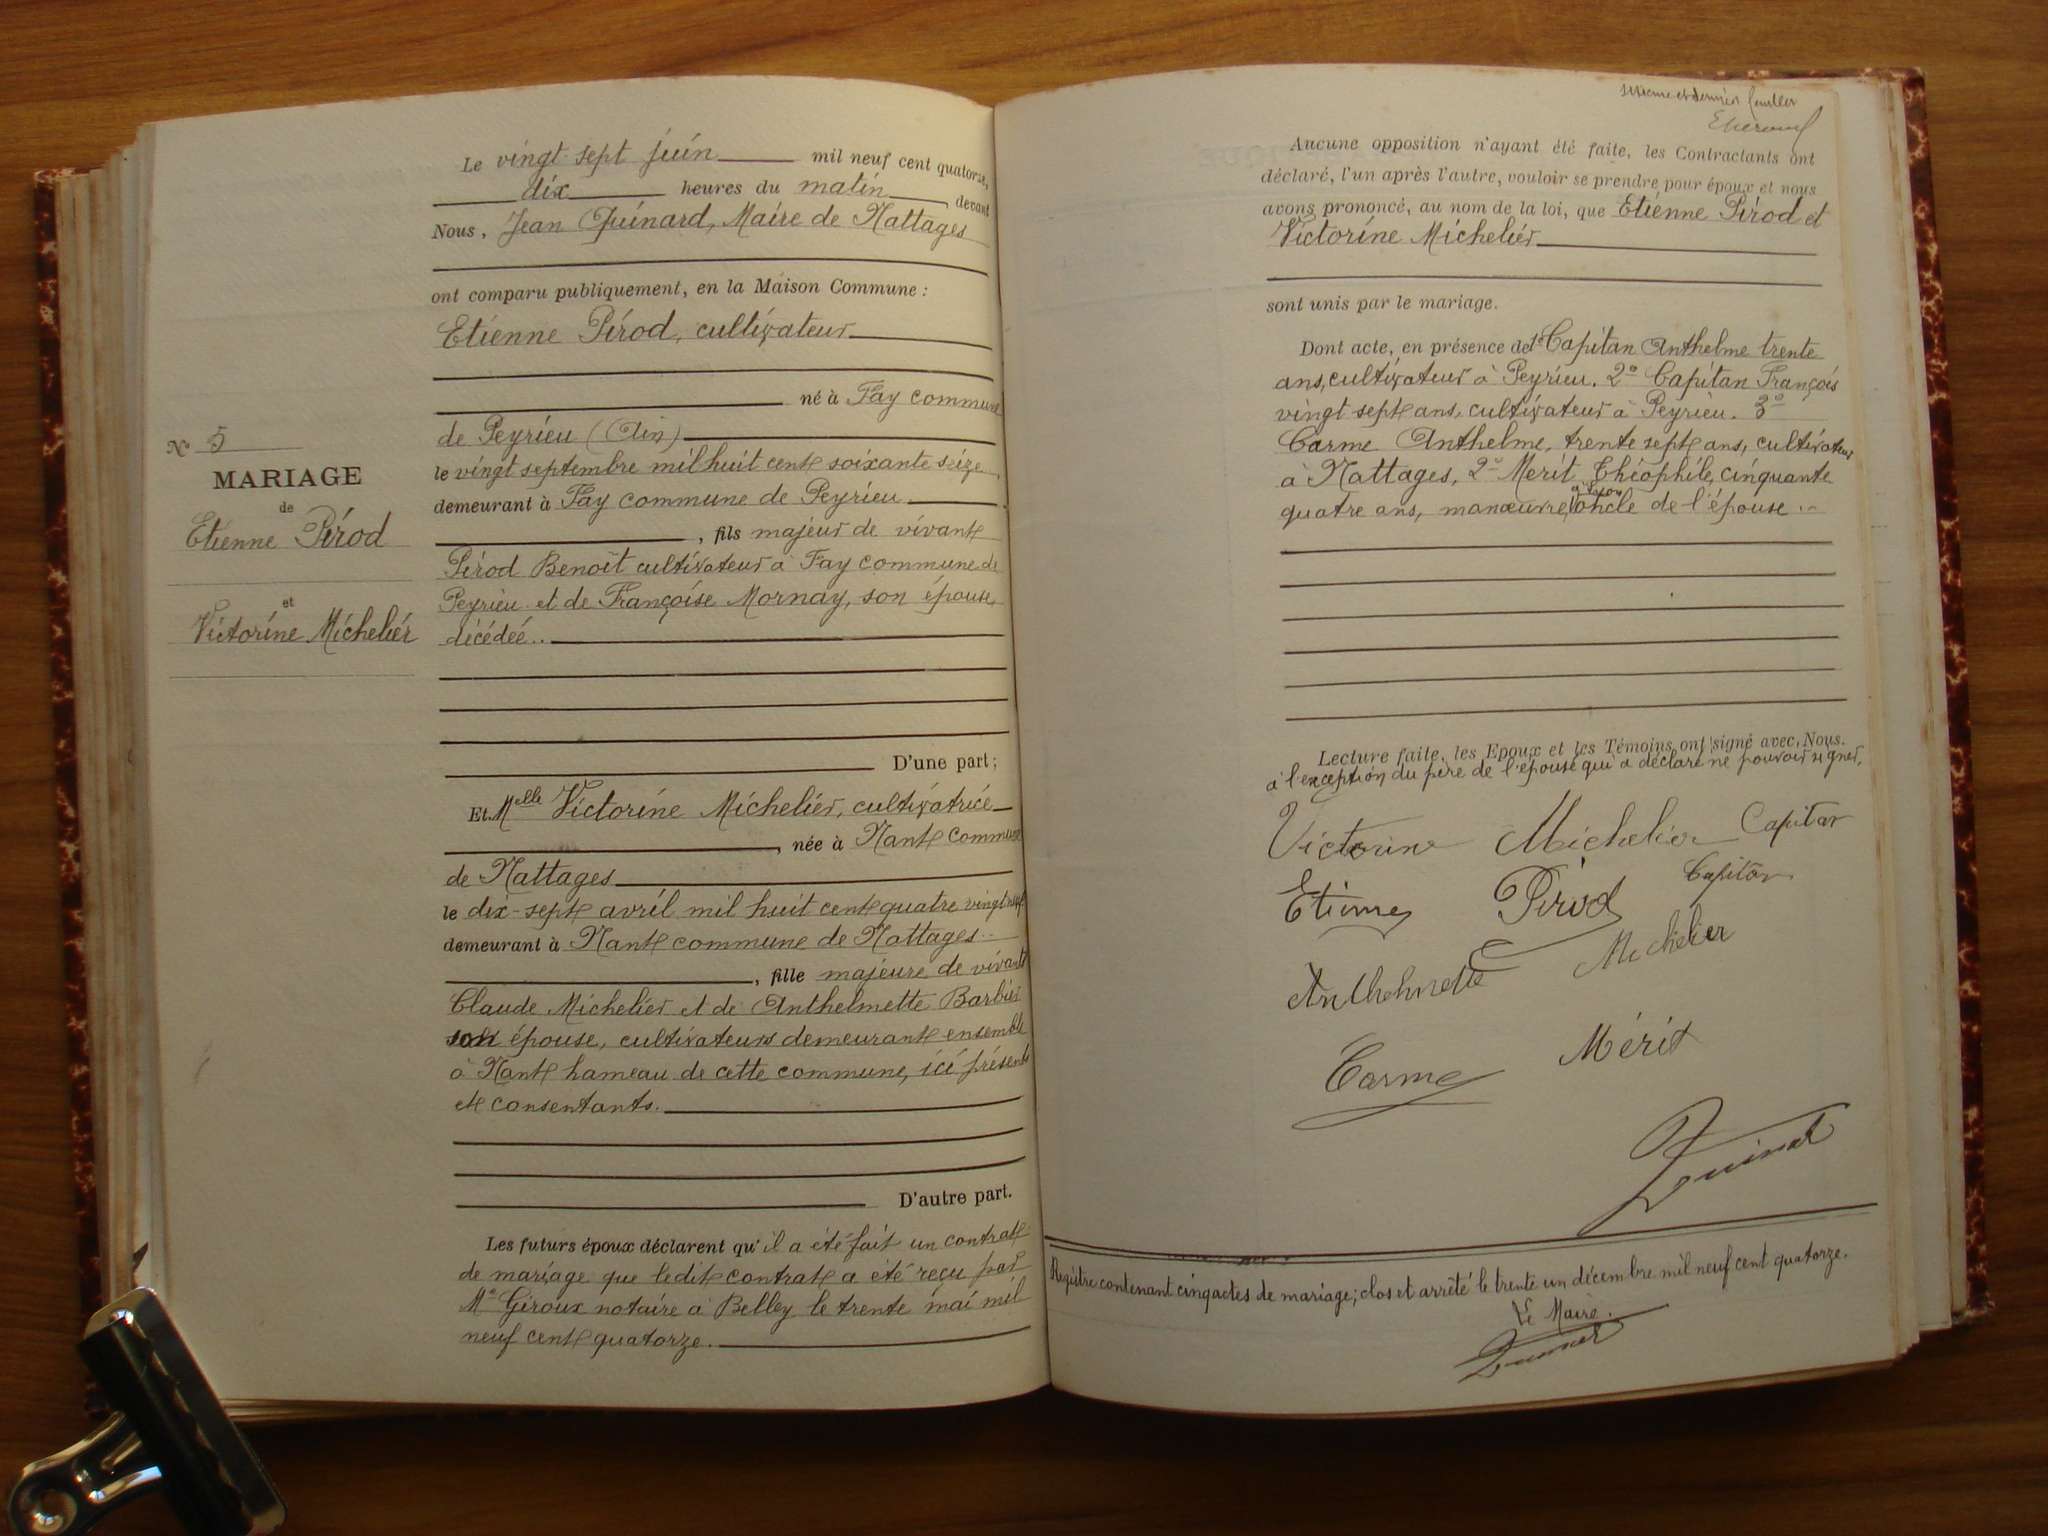 Le vingt sept juin mil neuf cent quatorze,
dix heures du matin, devant
Nous, Jean Quinard, Maire de Nattages
ont comparu publiquement, en la Maison Commune :
Etienne Pérod, cultivateur
né à Fay commune
de Peyrieu (Ain)
le vingt septembre mil huit cent soixante seize,
demeurant à Fay commune de Peyrieu
, fils majeur de vivant
Pérod Benoît cultivateur à Fay commune de
Peyrieu et de Françoise Mornay, son épouse,
décédée..
D'une part ;
N° 5
MARIAGE
de
Etienne Pérod
et
Victorine Michelier
Et Melle Victorine Michelier, cultivatrice
, née à Nant commune
de Nattages
le dix-sept avril mil huit cent quatre vingt neuf
demeurant à Nant commune de Nattages..
, fille majeure de vivants
Claude Michelier et de Anthelmette Barbier
son épouse, cultivateurs demeurant ensemble
à Nant hameau de cette commune, ici présents
et consentants.
D'autre part.
Les futurs époux déclarent qu'il a été fait un contrat
de mariage que ledit contrat a été reçu par
Me Giroux notaire à Belley le trente mai mil
neuf cent quatorze.
et dernier feuillet
Aucune opposition n'ayant été faite, les Contractants ont
déclaré, l'un après l'autre, vouloir se prendre pour époux et nous
avons prononcé, au nom de la loi, que Etienne Pérod et
Victorine Michelier
sont unis par le mariage.
Dont acte, en présence de 1° Capitan Anthelme trente
ans, cultivateur à Peyrieu. 2° Capitan François
vingt sept ans, cultivateur à Peyrieu. 3°
Carme Anthelme, trente sept ans, cultivateur
à Nattages, 2° Merit Théophile, cinquante
quatre ans, manœuvre à Lyon oncle de l'épouse..
Lecture faite, les Epoux et les Témoins ont signé avec Nous.
à l'exception du père de l'épouse qui a déclaré ne pouvoir signer.
Victorine Michelier Capitan
Etienne Pirod Capitan
Anthelmette Michelier
Carme Mérit
Quinard
Registre contenant cinq actes de mariage; clos et arrêté le trente un décembre mil neuf cent quatorze.
Le Maire.
Quinard